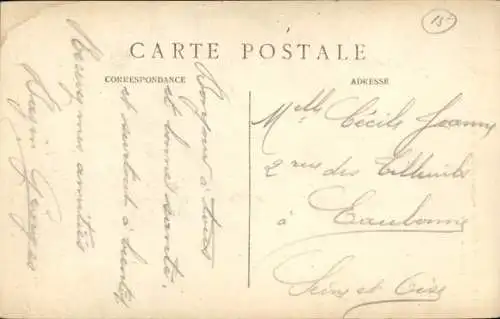 15
CARTE POSTALE
CORRESPONDANCE
ADRESSE
Bonjour à tous
et bonne santé.
et surtout à bientôt
Recevez mes amitiés
Georges
Melle Cécile Jeanne
2 rue des Tilleuls
à Eaubonne
Seine et Oise